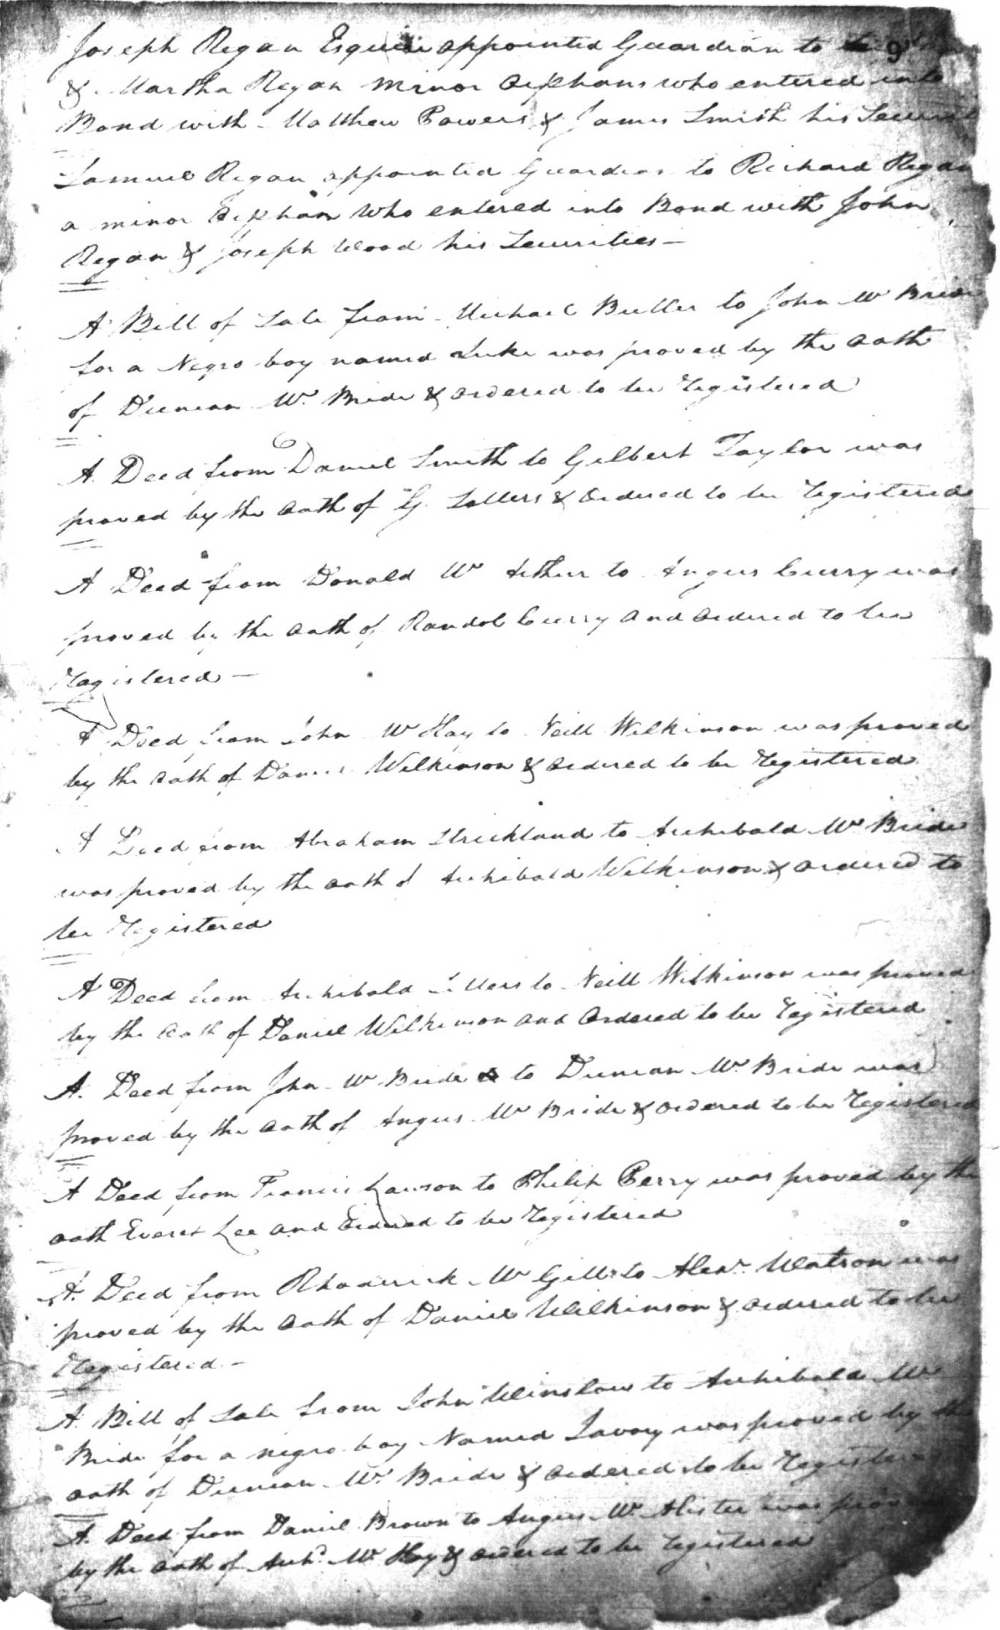 9
Joseph Regan Esquire appointed Guardian to
& Martha Regan minor orphans who entered into
Bond with Matthew Powers & James Smith his Securit
Samuel Regan appointed Guardian to Richard Regan
a minor orphan who entered into Bond with John
Regan & Joseph Wood his Securities —
A Bill of Sale from Michael Butler to John Mc Bride
for a Negro boy named Luke was proved by the oath
of Duncan Mc Bride & ordered to be Registered
A Deed from Daniel Smith to Gilbert Taylor was
proved by the oath of G. Sellers & ordered to be Registered
A Deed from Donald Mc Arthur to Angus Curry was
proved by the oath of Randol Curry and ordered to be
Registered —
A Deed from John Mc Kay to Neill Wilkinson was proved
by the oath of Daniel Wilkinson & ordered to be Registered
A Deed from Abraham Strickland to Archibald Mc Bride
was proved by the oath of Archibald Wilkinson & ordered to
be Registered
A Deed from Archibald Sellers to Neill Wilkinson was proved
by the oath of Daniel Wilkinson and ordered to be Registered
A Deed from John Mc Bride to Duncan Mc Bride was
proved by the oath of Angus Mc Bride & ordered to be Registered
A Deed from Francis Lawson to Philip Perry was proved by the
oath Everet Lee and ordered to be Registered
A Deed from Rhoderick Mc Gill to Alexr. Watson was
proved by the oath of Daniel Wilkinson & ordered to be
Registered —
A Bill of Sale from John Winslow to Archibald Mc
Bride for a negro boy Named Savory was proved by the
oath of Duncan Mc Bride & ordered to be Register
A Deed from Daniel Brown to Angus Mc Alister was prov
by the oath of Archd. Mc Kay & ordered to be Registered